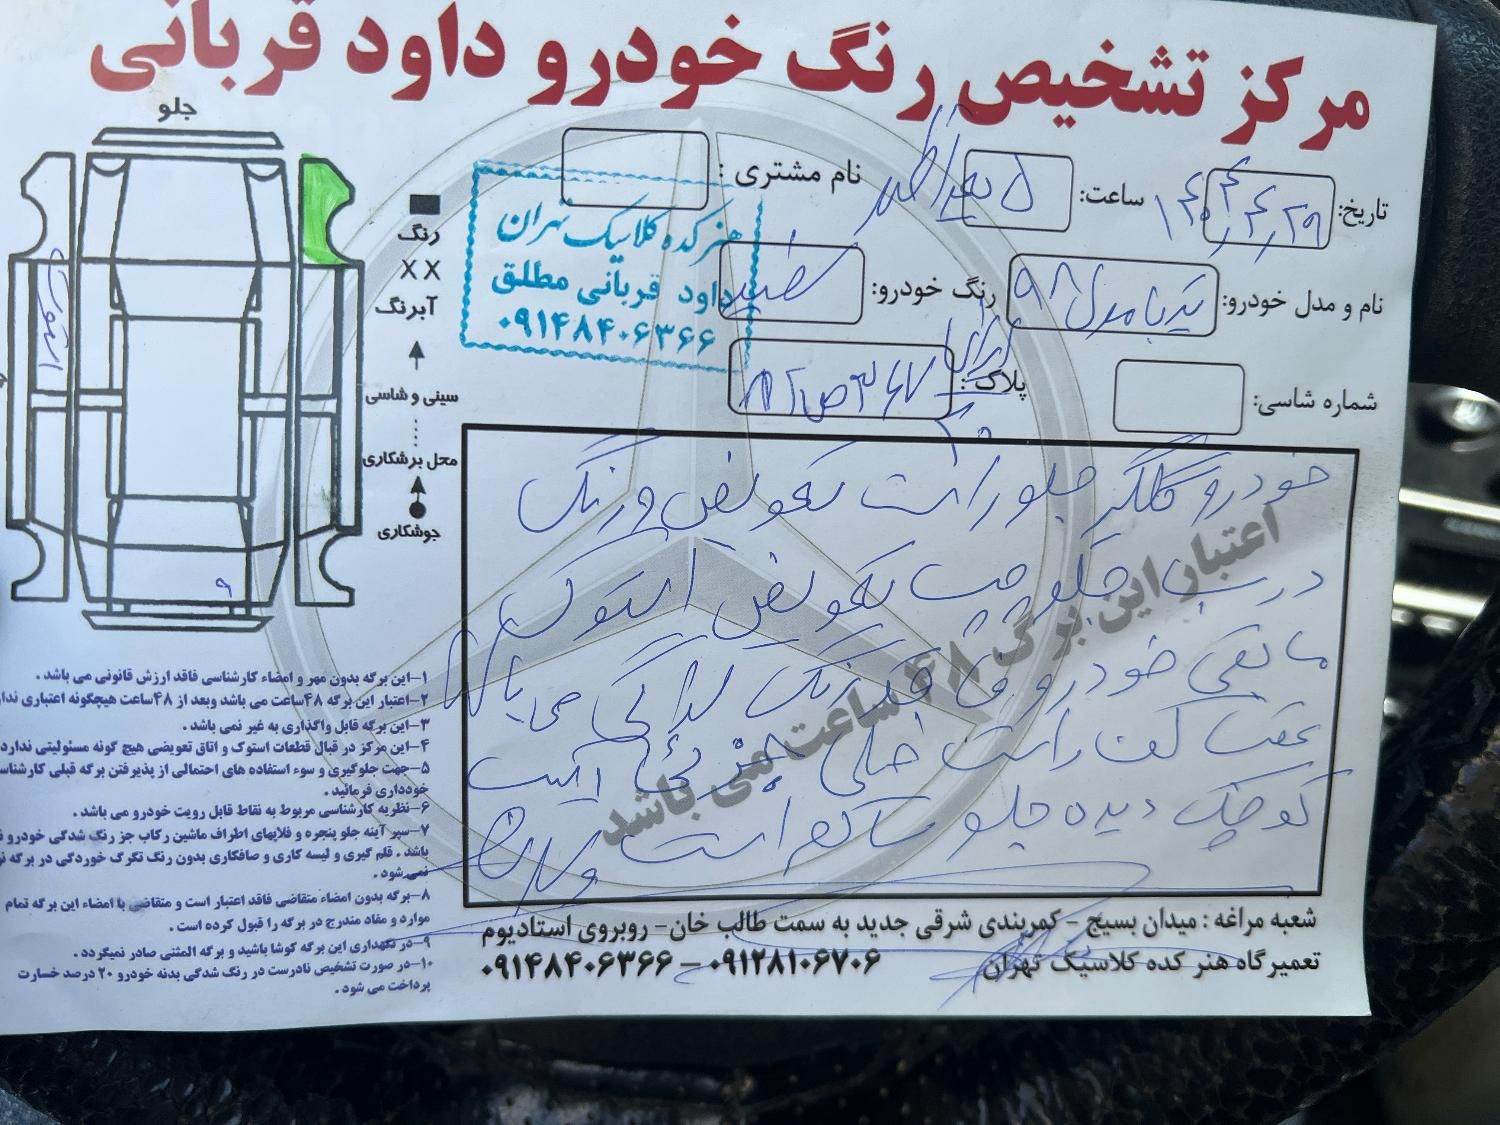 مرکز تشخیص رنگ خودرو داود قربانی
تاریخ: ۱۴۰۴,۴,۲۹
ساعت: ۵ بعدازظهر
نام مشتری:
نام و مدل خودرو: تیبا مدل ۹۸
رنگ خودرو: سفید
شماره شاسی:
پلاک: ایران
هنرکده کلاسیک تهران
داود قربانی مطلق
۰۹۱۴۸۴۰۶۳۶۶
جلو
رنگ
X X
آبرنگ
سینی و شاسی
محل برشکاری
جوشکاری
استوک
خودرو گلگیر جلو راست تعویض و رنگ
درب جلو چپ تعویض استوک
مابقی خودرو فاقد رنگ شدگی می باشد
عقب کف راست خیلی جزئی
کوچک دیده جلو سالم است
اعتبار این برگ ۴۸ ساعت می باشد
۱-این برگه بدون مهر و امضاء کارشناسی فاقد ارزش قانونی می باشد .
۲-اعتبار این برگه ۴۸ساعت می باشد وبعد از ۴۸ساعت هیچگونه اعتباری ندار
۳-این برگه قابل واگذاری به غیر نمی باشد .
۴-این مرکز در قبال قطعات استوک و اتاق تعویضی هیچ گونه مسئولیتی ندارد
۵-جهت جلوگیری و سوء استفاده های احتمالی از پذیرفتن برگه قبلی کارشناس
خودداری فرمائید .
۶-نظریه کارشناسی مربوط به نقاط قابل رویت خودرو می باشد .
۷-سپر آینه جلو پنجره و فلاپهای اطراف ماشین رکاب جز رنگ شدگی خودرو ن
باشد . قلم گیری و لیسه کاری و صافکاری بدون رنگ تگرگ خوردگی در برگه
نمی شود .
۸-برگه بدون امضاء متقاضی فاقد اعتبار است و متقاضی با امضاء این برگه تمام
موارد و مفاد مندرج در برگه را قبول کرده است .
۹-در نگهداری این برگه کوشا باشید و برگه المثنی صادر نمیگردد .
۱۰-در صورت تشخیص نادرست در رنگ شدگی بدنه خودرو ۲۰ درصد خسارت
پرداخت می شود .
شعبه مراغه : میدان بسیج - کمربندی شرقی جدید به سمت طالب خان- روبروی استادیوم
تعمیرگاه هنر کده کلاسیک تهران ۰۹۱۲۸۱۰۶۷۰۶ - ۰۹۱۴۸۴۰۶۳۶۶